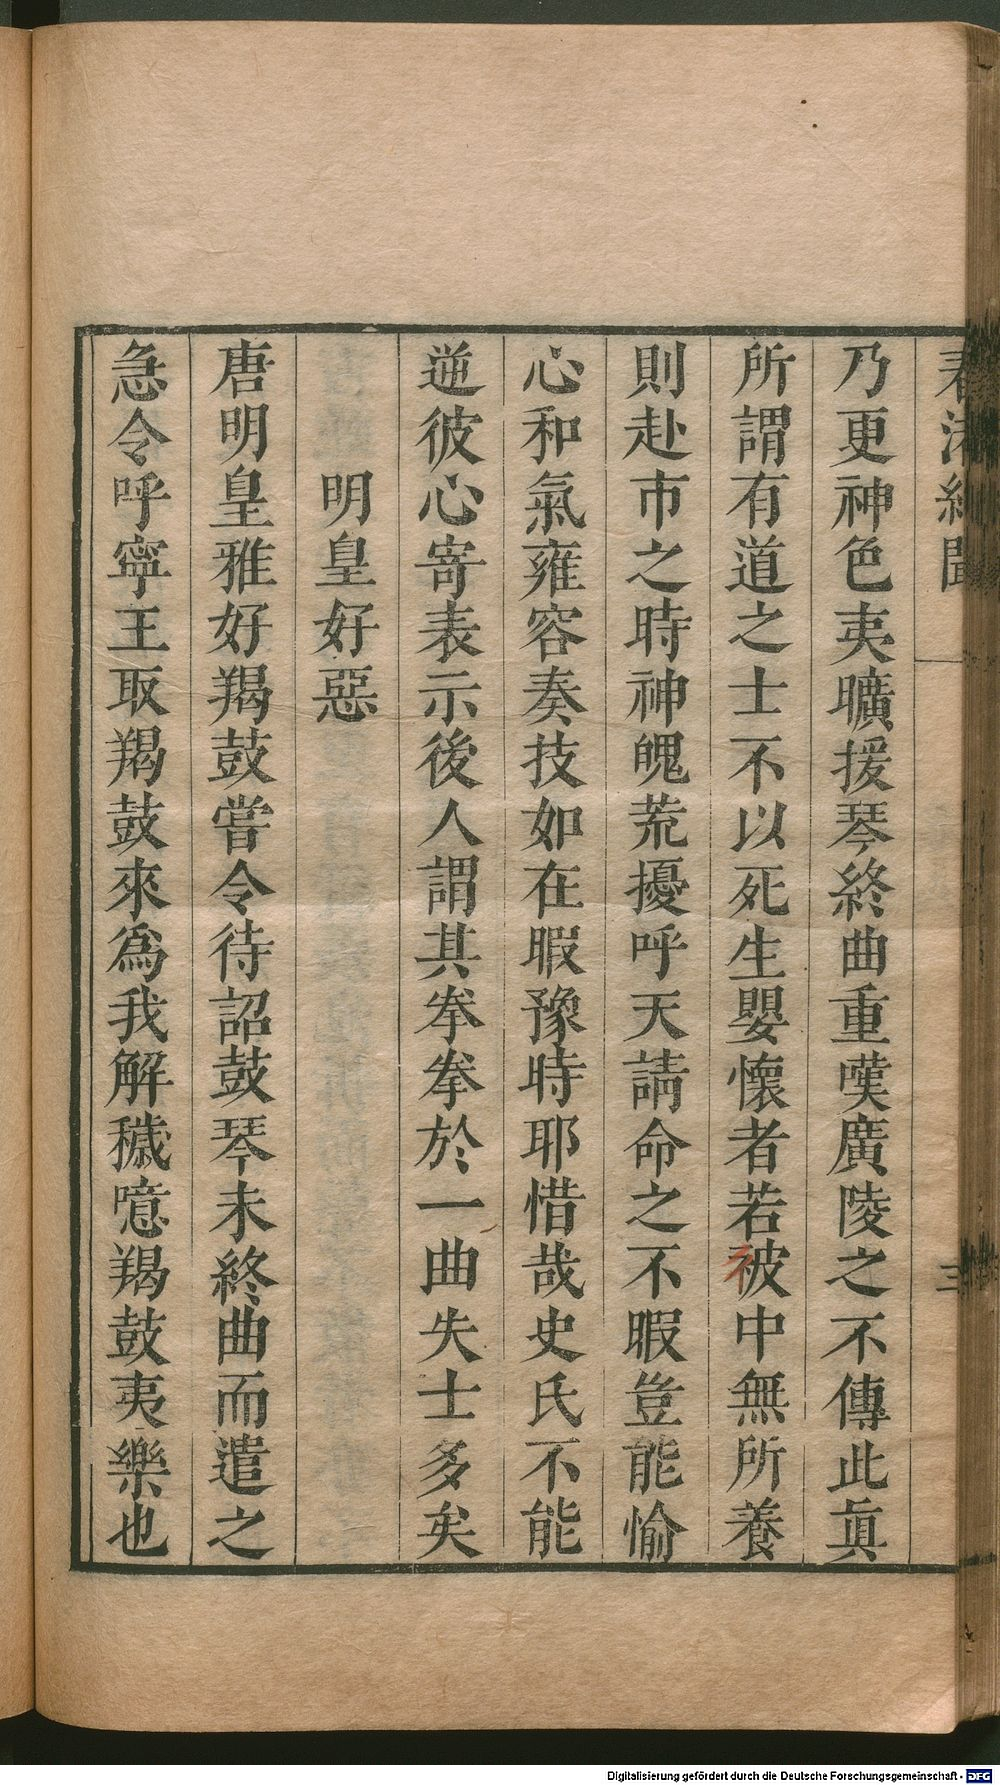 春渚紀聞
三
乃更神色夷曠援琴終曲重嘆廣陵之不傳此眞
所謂有道之士不以死生嬰懷者若被中無所養
則赴市之時神魄荒擾呼天請命之不暇豈能愉
心和氣雍容奏技如在暇豫時耶惜哉史氏不能
逆彼心寄表示後人謂其拳拳於一曲失士多矣
明皇好惡
唐明皇雅好羯鼓嘗令待詔鼓琴未終曲而遣之
急令呼寧王取羯鼓來爲我解穢噫羯鼓夷樂也
Digitalisierung gefördert durch die Deutsche Forschungsgemeinschaft - DFG